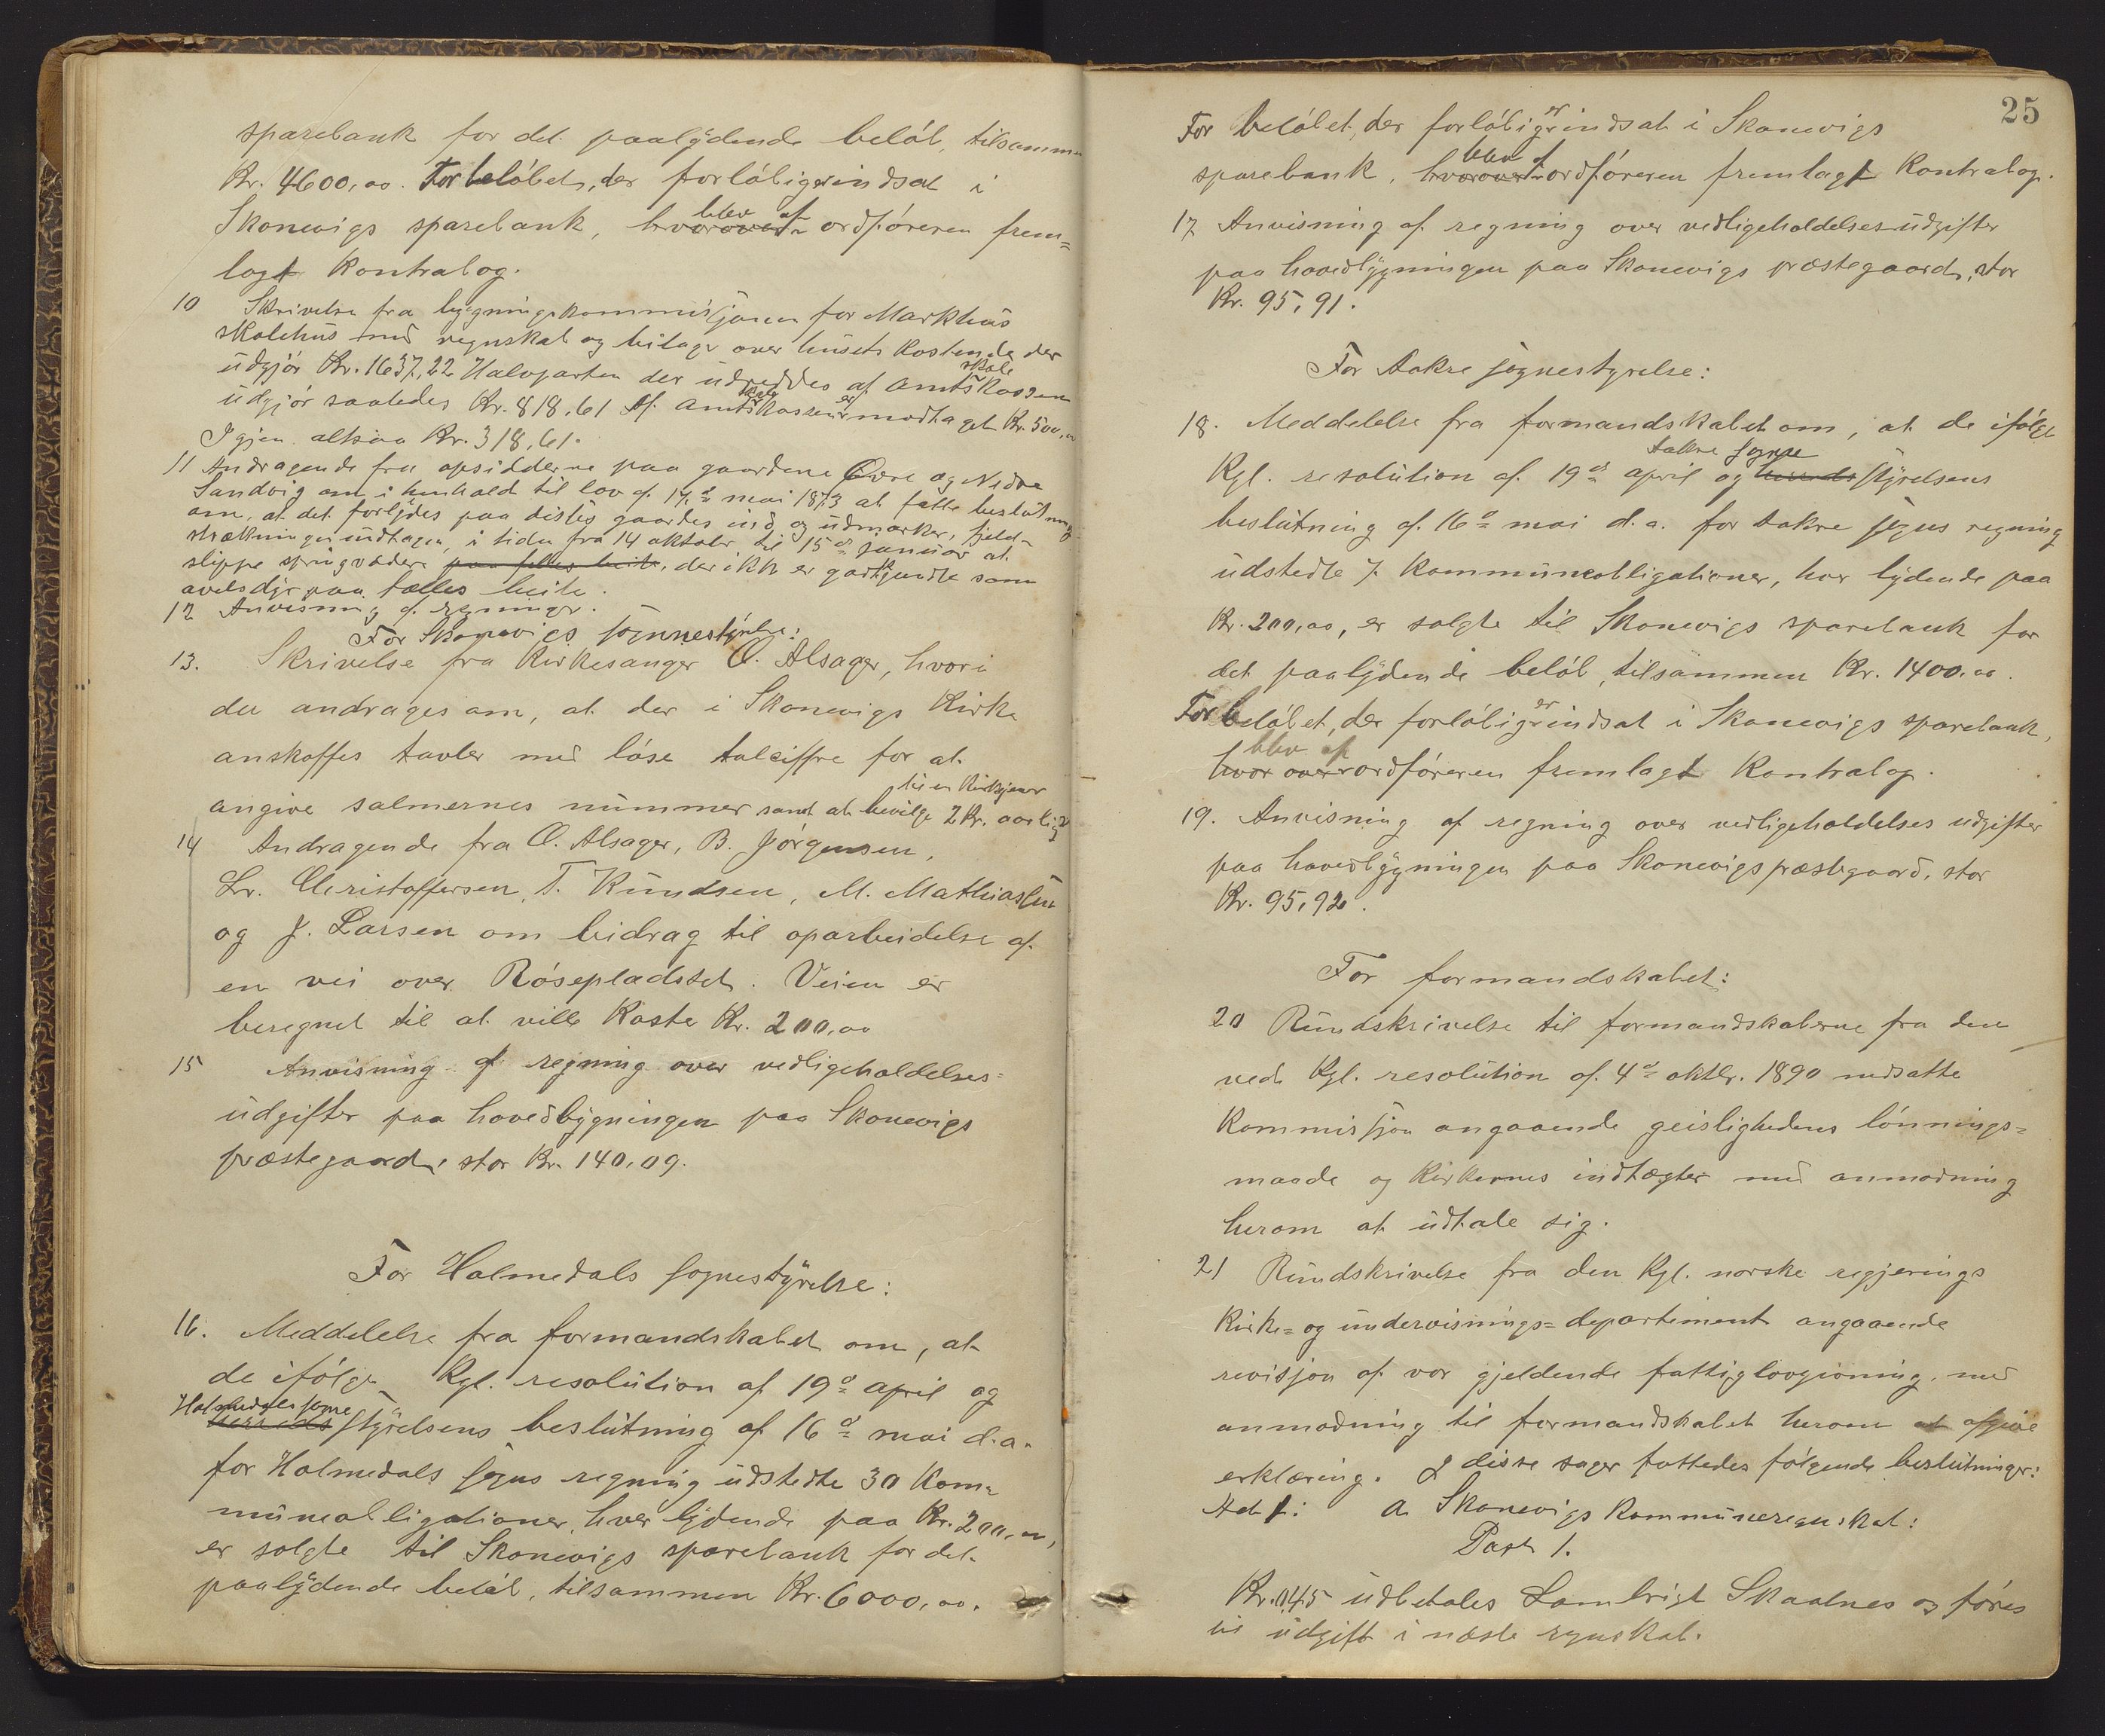 sparebank for det paalydende beløb, tilsammen
Kr. 4600,00. For beløbet, der forløbiger indsat i
Skonevigs sparebank, hvorover blev af ordføreren frem=
lagt Kontrabog.
10 Skrivelse fra bygningskommissjonen for Markhus
skolehus med regnskab og bilage over husets kostende der
udgjør Kr. 1637,22 Halvparten der udreddes af amtsskolekassen
udgjør saaledes Kr. 818,61 Af amtsskolekassen er modtaget Kr. 500,00
Igjen altsaa Kr. 318,61.
11 Andragende fra opsidderne paa gaardene Øvre og Nedre
Sandvig om i henhold til lov af 17de mai 1873 at fatte beslutning
om, at det forbydes paa disses gaardes ind og udmarker, fjeld-
strækninger undtagen, i tiden fra 14 oktober til 15de januar at
slippe springvædere paa felles beite, der ikke er godkjendte som
avelsdyr paa fælles beite.
12 Anvisning af regninger.
For Skonevigs sognestyrelse:
13. Skrivelse fra Kirkesanger O. Alsager, hvori
der andrages om, at der i Skonevigs Kirke
anskaffes tavler med løse talciffre for at
angive salmernes nummer samt at bevilge til en Kirketjener 2 Kr. aarlig
14 Andragende fra O. Alsager, B. Jørgensen,
Lr. Christoffersen, T. Knudsen, M. Mathiassen
og J. Larsen om bidrag til oparbeidelse af
en vei over Røsepladset. Veien er
beregnet til at ville koste Kr. 200,00
15 Anvisning af regning over vedligeholdelses=
udgifter paa hovedbygningen paa Skonevigs
præstegaard, stor Kr. 140,09.
For Holmedals sognestyrelse:
16. Meddelelse fra formandskabet om, at
de ifølge Kgl. resolution af 19de april og
Holmedals sogne
herreds styrelsens beslutning af 16de mai d.a.
for Holmedals sogns regning udstedte 30 Kom=
muneobligationer, hver lydende paa Kr. 200,00,
er solgte til Skonevigs sparebank for det
paalydende beløb, tilsammen Kr. 6000,00.
25
For beløbet, der forløbig er indsat i Skonevigs
sparebank, hvorover blev af ordføreren fremlagt Kontrabog.
17 Anvisning af regning over vedligeholdelses udgifter
paa hovedbygningen paa Skonevigs præstegaard, stor
Kr. 95,91.
For Aakre sognestyrelse:
18. Meddelelse fra formandskabet om, at de ifølge
Aakre sogne
Kgl. resolution af 19de april og herreds styrelsens
beslutning af 16de mai d.a. for Aakre sogns regning
udstedte 7 Kommuneobligationer, hver lydende paa
Kr. 200,00, er solgte til Skonevigs sparebank for
det paalydende beløb, tilsammen Kr. 1400,00.
For beløbet, der forløbig er indsat i Skonevigs sparebank,
hvorover blev af ordføreren fremlagt Kontrabog.
19. Anvisning af regning over vedligeholdelses udgifter
paa hovedbygningen paa Skonevigs præstegaard, stor
Kr. 95,92.
For formandskabet:
20 Rundskrivelse til formandskaberne fra den
ved Kgl. resolution af 4de oktbr. 1890 nedsatte
Kommissjon angaaende geistlighedens lønnings=
maade og Kirkernes indtægter med anmodning
herom at udtale sig.
21 Rundskrivelse fra den Kgl. norske regjerings
Kirke= og undervisnings=departement angaaende
revisjon af vor gjeldende fattiglovgivning, med
anmodning til formandskabet herom at afgive
erklæring. I disse sager fattedes følgende beslutninger:
Ad 1: a Skonevigs Kommuneregnskab:
Post 1.
Kr. 0,45 udbetales Lambrigt Skaalnes og føres
til udgift i næste regnskab.